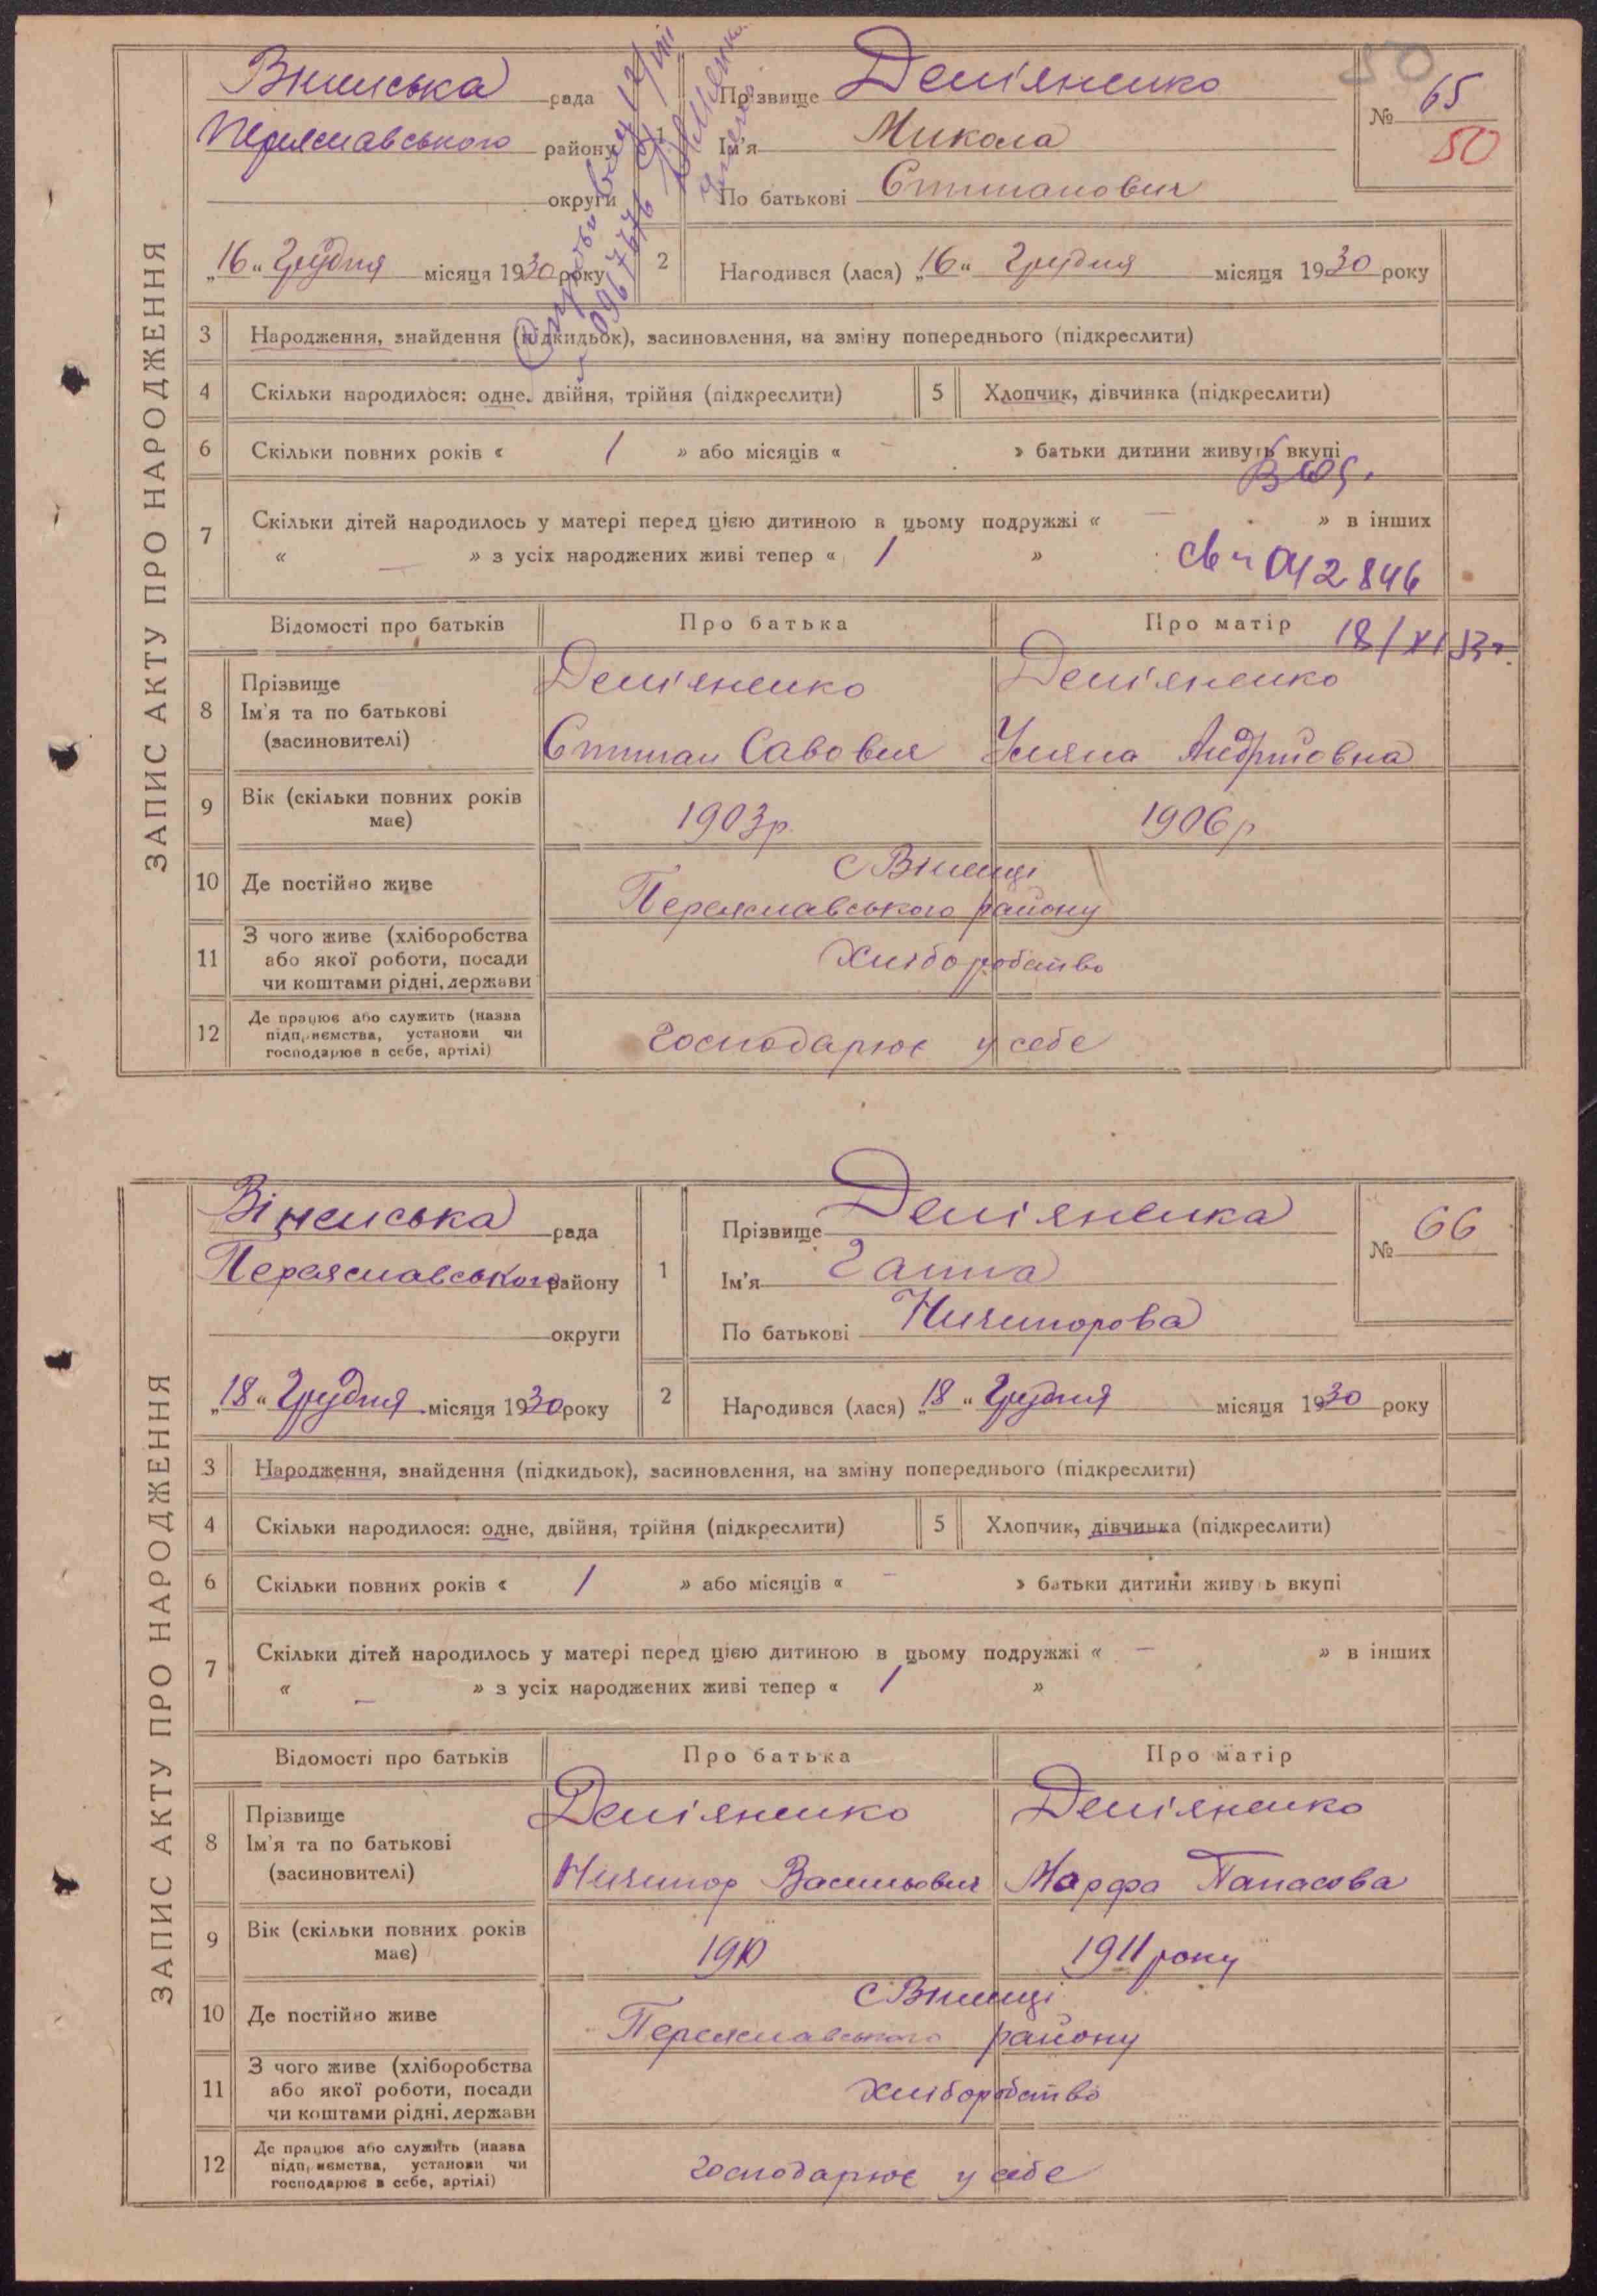 ЗАПИС АКТУ ПРО НАРОДЖЕННЯ
рада
Переяславського району
округи
„16“ Грудня місяця 1930 року
1
Прізвище Дем'яненко
Ім'я Микола
По батькові Степанович
№ 65
50
50
2 Народився (лася) „16“ Грудня місяця 1930 року
3 Народження, знайдення (підкидьок), засиновлення, на зміну попереднього (підкреслити)
4 Скільки народилося: одне, двійня, трійня (підкреслити)
5 Хлопчик, дівчинка (підкреслити)
6 Скільки повних років « 1 » або місяців « – » батьки дитини живуть вкупі
7 Скільки дітей народилось у матері перед цією дитиною в цьому подружжі « – » в інших
« – » з усіх народжених живі тепер « 1 »
042846
18/XI
Відомості про батьків Про батька Про матір
8 Прізвище Дем'яненко Дем'яненко
Ім'я та по батькові
(засиновителі) Степан Савович Уляна Андріївна
9 Вік (скільки повних років
має) 1903р. 1906р
10 Де постійно живе
Переяславського району
11 З чого живе (хліборобства
або якої роботи, посади
чи коштами рідні, держави
Хліборобство
12 Де працює або служить (назва
підприємства, установи чи
господарює в себе, артілі)
Господарює у себе
ЗАПИС АКТУ ПРО НАРОДЖЕННЯ
рада
Переяславського району
округи
„18“ Грудня місяця 1930 року
1
Прізвище Дем'яненка
Ім'я Ганна
По батькові Ничипорова
№ 66
2 Народився (лася) „18“ Грудня місяця 1930 року
3 Народження, знайдення (підкидьок), засиновлення, на зміну попереднього (підкреслити)
4 Скільки народилося: одне, двійня, трійня (підкреслити)
5 Хлопчик, дівчинка (підкреслити)
6 Скільки повних років « 1 » або місяців « – » батьки дитини живуть вкупі
7 Скільки дітей народилось у матері перед цією дитиною в цьому подружжі « – » в інших
« – » з усіх народжених живі тепер « 1 »
Відомості про батьків Про батька Про матір
8 Прізвище Дем'яненко Дем'яненко
Ім'я та по батькові
(засиновителі) Ничипор Васильович Марфа Панасова
9 Вік (скільки повних років
має) 1910 1911 року
10 Де постійно живе
Переяславського району
11 З чого живе (хліборобства
або якої роботи, посади
чи коштами рідні, держави
хліборобство
12 Де працює або служить (назва
підприємства, установи чи
господарює в себе, артілі)
господарює у себе